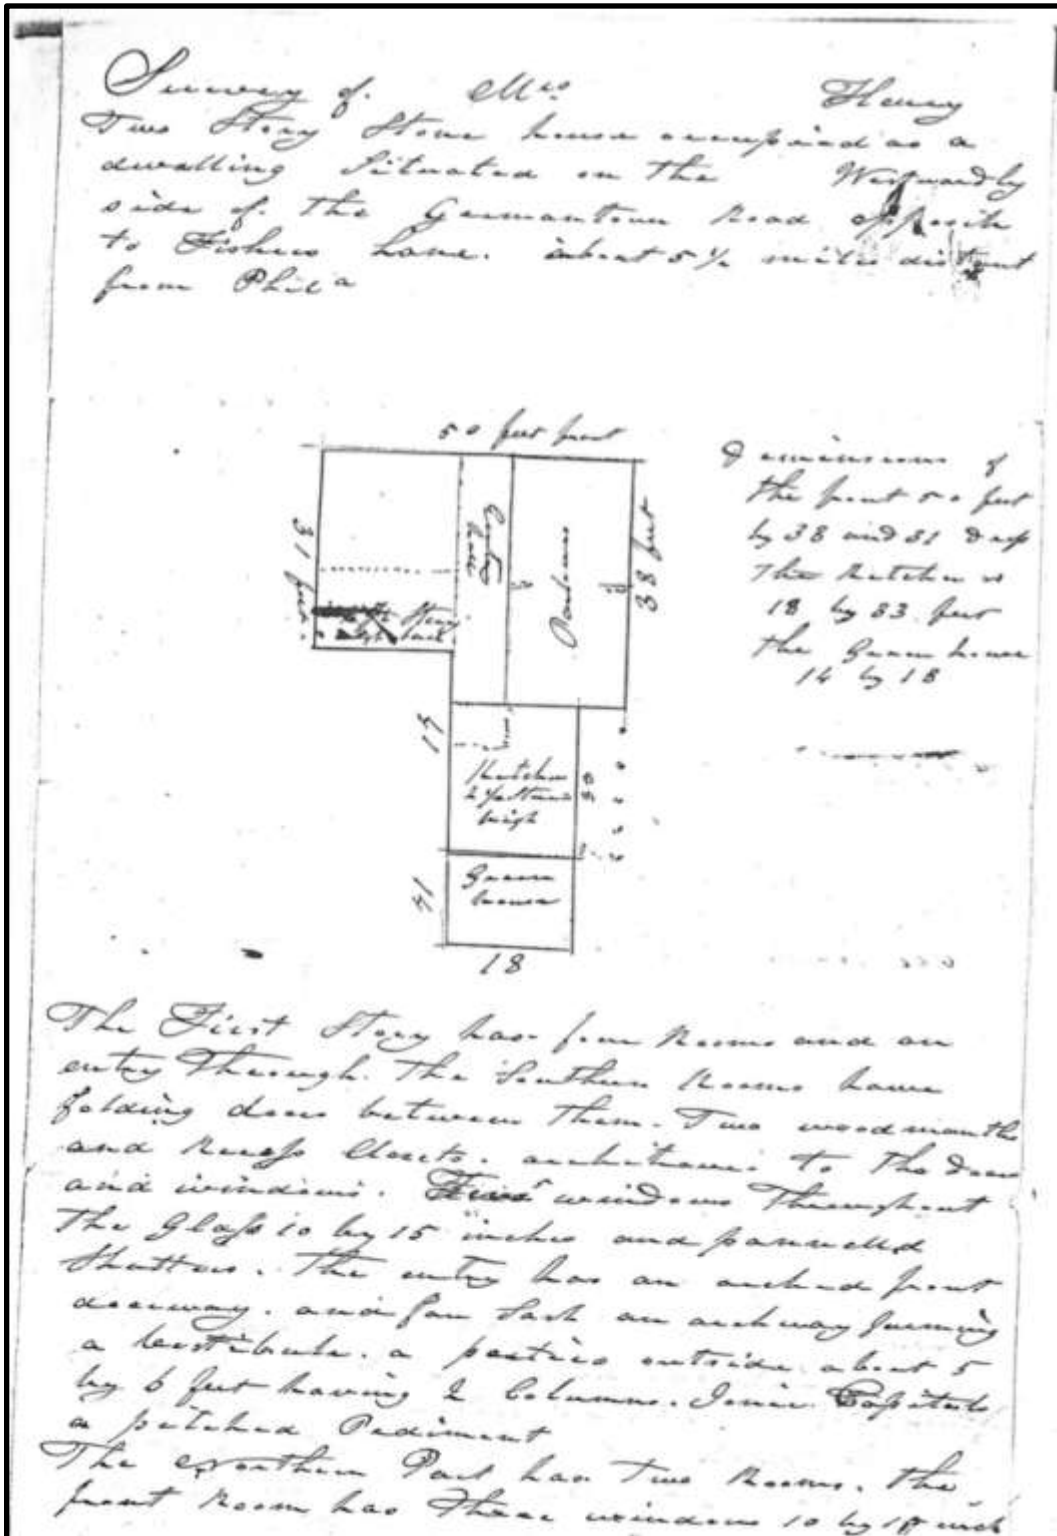 Survey of. Mrs Henry
Two Story Stone house occupied as a
dwelling Situated on the Westwardly
side of. the Germantown Road opposite
to Fishers Lane. about 5 ½ miles distant
from Phila
50 feet front
31 feet.
Entry
Parlours
38 feet
Story
Dimensions of
the front 50 feet
by 38 and 31 deep
The Kitchen is
18 by 33. feet
the Green house
14 by 18
Kitchen
2
high
Green
house
14
18
The First Story has four Rooms and an
entry Through. The Southern Rooms have
folding doors between them. Two wood mantls
and Recess Closets. architraves to The doors
and windows. windows Throughout
The Glass 10 by 15 inches and pannelld
Shutters. The entry has an arched front
doorway. and fan Sash an archway forming
a Vestibule. a portico outside about 5
by 6 feet having 2 Columns. Ionic Capitals
a pitched Pediment
The Northern Part has Two Rooms. The
front Room has Three windows 10 by 18 inch